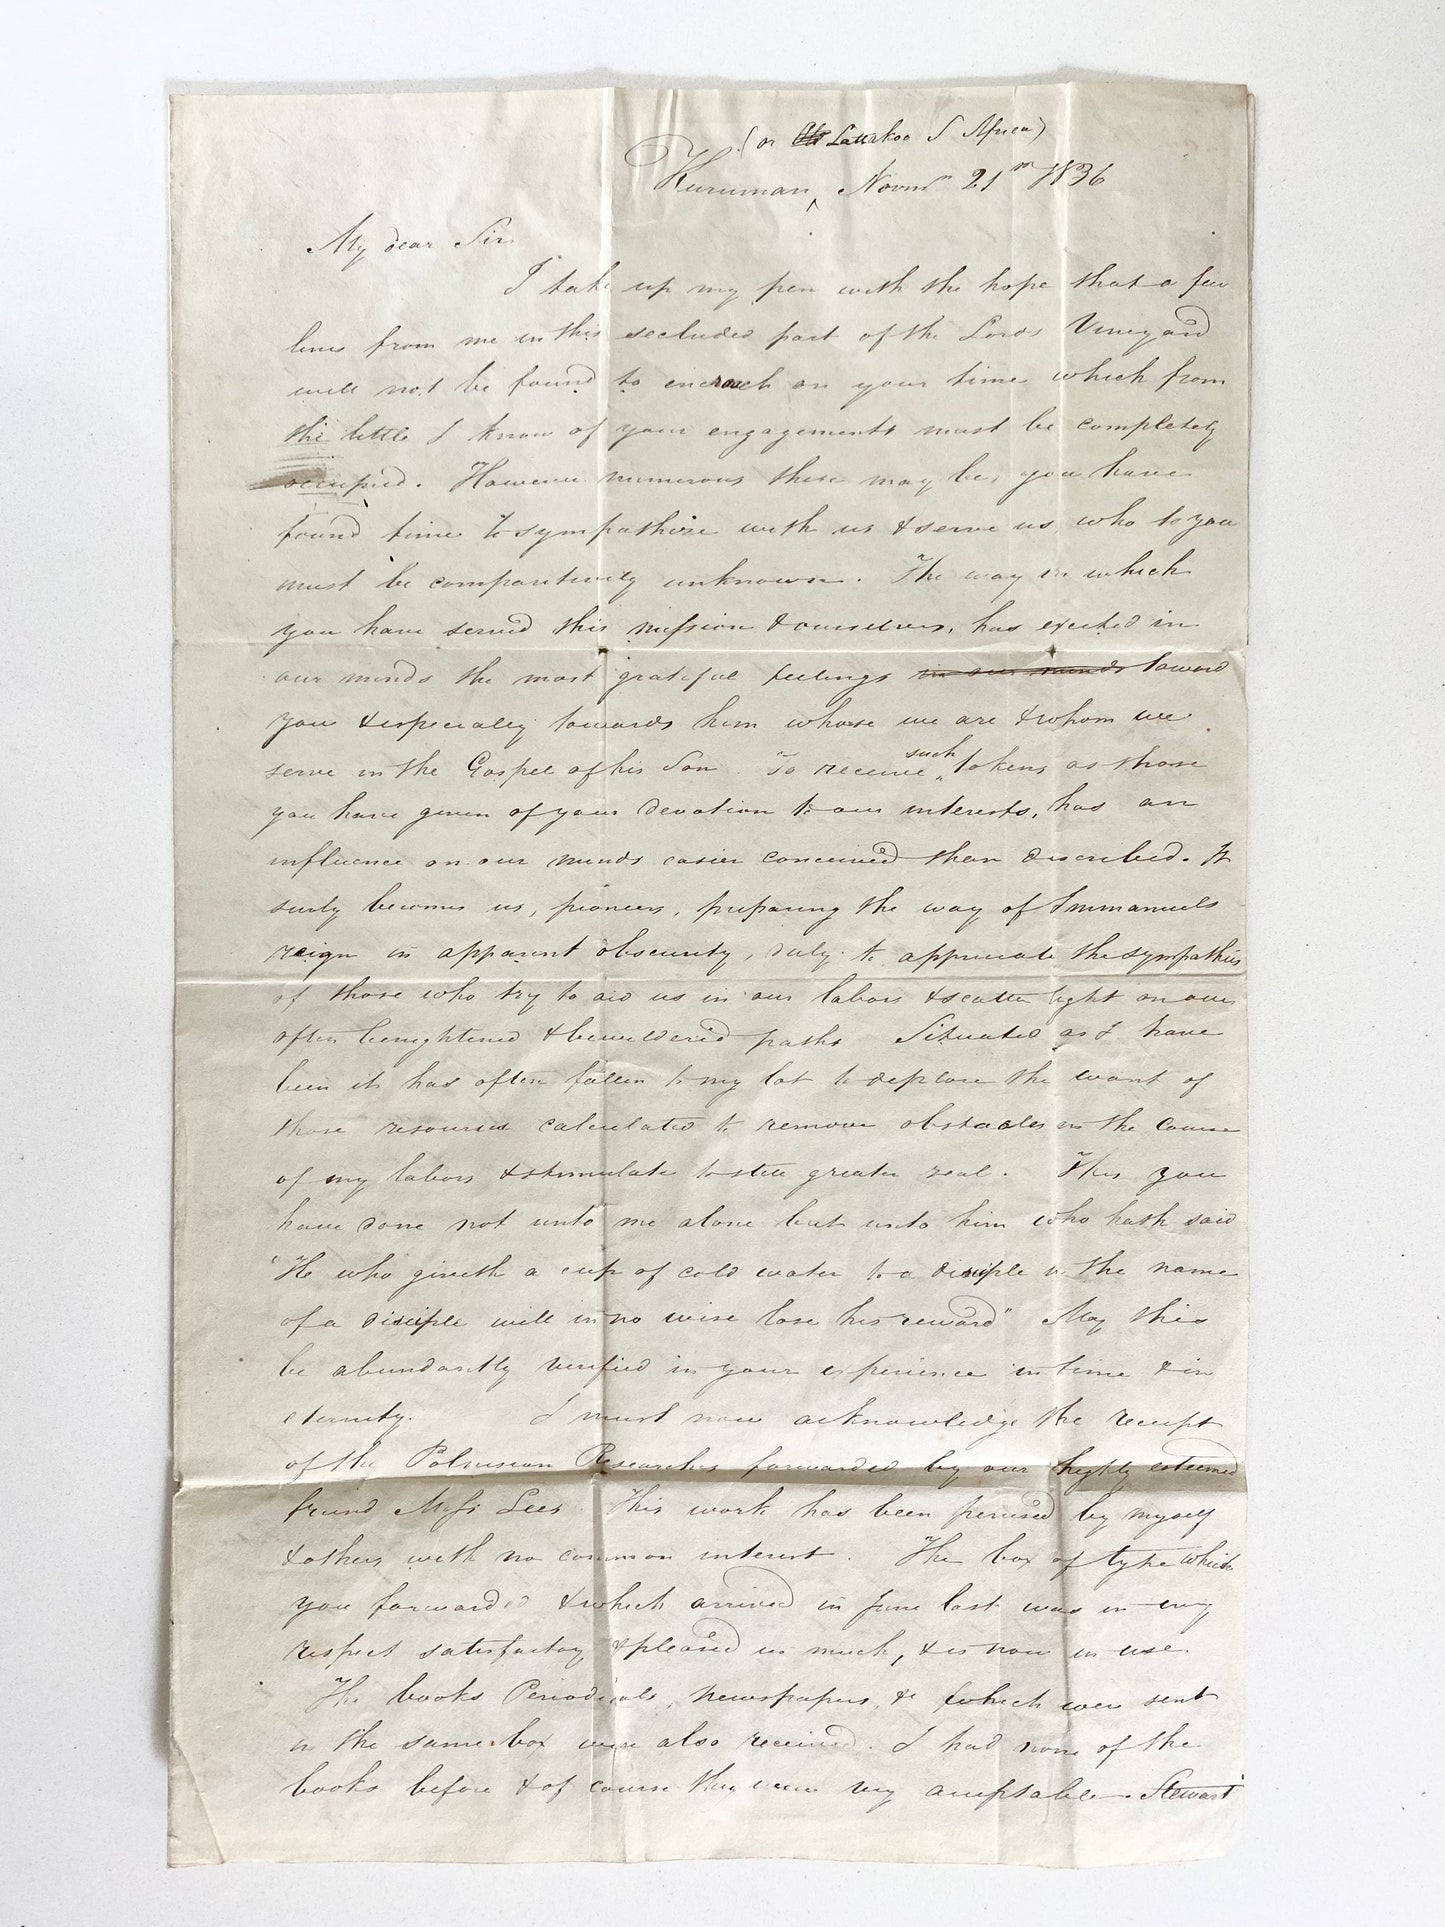 (or Lattakoo S Africa)
Kuruman, Novmr 21st 1836
My dear Sir
I take up my pen with the hope that a few
lines from me in this secluded part of the Lords Vineyard
will not be found to encroach on your time which from
the little I know of your engagements must be completely
occupied. However numerous these may be, you have
found time to sympathize with us & serve us, who to you
must be comparitively unknown. The way in which
you have served this mission & ourselves, has excited in
our minds the most grateful feelings in our minds toward
you & especially towards him whose we are & whom we
serve in the Gospel of his Son. To receive such tokens as those
you have given of your devotion to our interests, has an
influence on our minds easier conceived than discribed. It
surly becomes us, pioneers, preparing the way of Immanuels
reign in apparent obscurity, duly to appreciate the sympathies
of those who try to aid us in our labors & scatter light on our
often benightened & bewildered paths Situated as I have
been it has often fallen to my lot to deplore the want of
those resources calculated to remove obstacles in the course
of my labors & stimulate to still greater zeal. This you
have done not unto me alone but unto him who hath said
"He who giveth a cup of cold water to a disciple in the name
of a disciple will in no wise lose his reward" May this
be abundantly verified in your experience in time & in
eternity. I must now acknowledge the receipt
of the Polynesian Researches forwarded by our highly esteemed
friend Miss Lees. This work has been perused by myself
& others with no common interest. The box of type which
you forwarded & which arrived in June last was in every
respect satisfactory & pleased us much, & is now in use
The books Periodicals, newspapers, &c which were sent
in the same box were also received. I had none of the
books before & of course they were very acceptable. Stewart